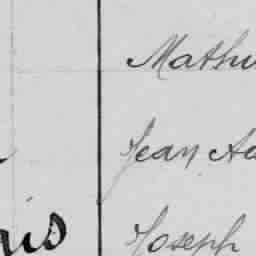 Mathu
Jean Ad
Joseph